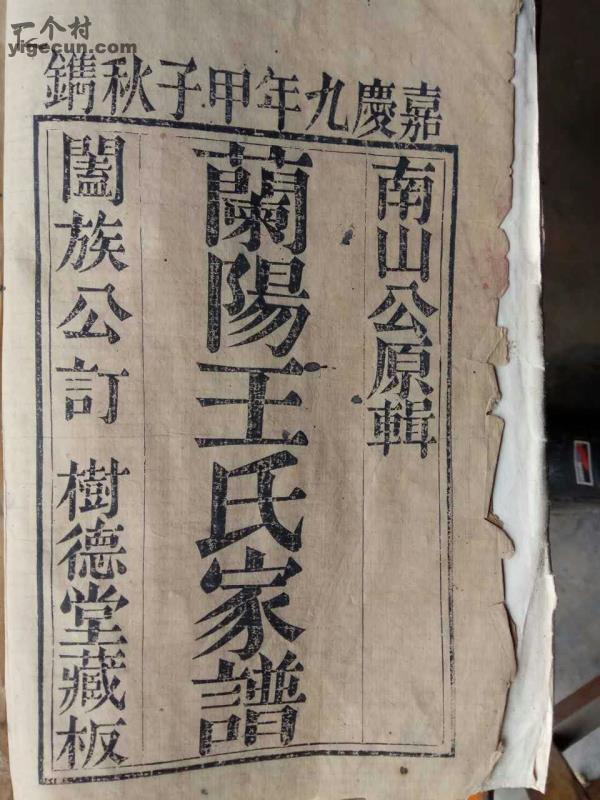 一个村
yigecun.com
嘉慶九年甲子秋鐫
南山公原輯
蘭陽王氏家譜
闔族公訂 樹德堂藏板